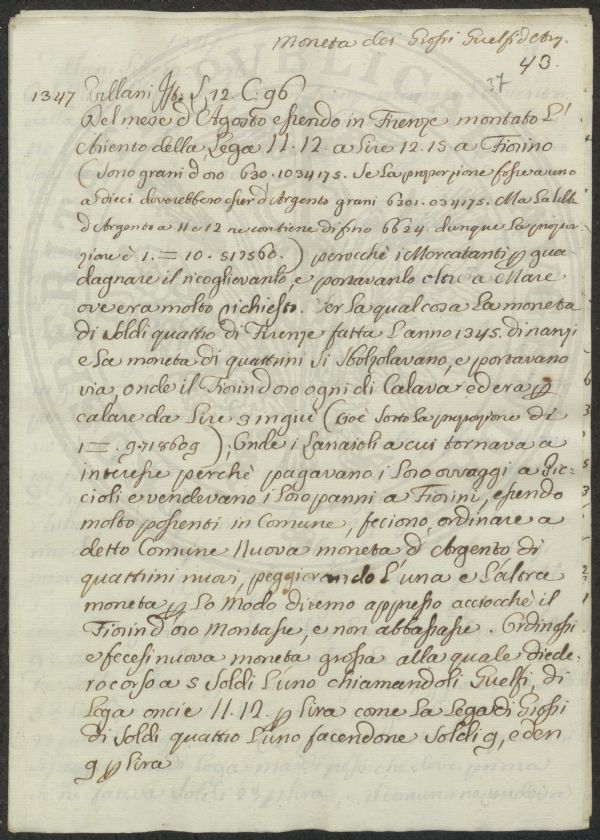 Moneta dei Grossi Guelfi d'Arg.
43.
37
1347 Villani L. 12. C. 96
Del mese d'Agosto essendo in Firenze montato l'
Ariento della Lega 11.12. a Lire 12.15 a Fiorino
(Sono grani d'oro 630.1034175. Se la proporzione fosse a uno
a dieci dovrebbero esser d'Argento grani 6301.034175. Ma la libb.
d'Argento a 11 e 12 ne contiene di fino 6624. dunque la propor
zione è 1.=10.512560.) perocchè i Mercatanti p gua
dagnare il ricoglievanlo, e portavanlo oltre a Mare
ove era molto richiesto. Per la qual cosa la moneta
di Soldi quattro di Firenze fatta l'anno 1345. dinanzi
e la moneta di quattrini si sbolzolavano, e portavano
via, onde il Fiorin d'oro ogni dì calava ed era p
calare da Lire 3 in giù (cioè sotto la proporzione di
1=.9.718609), Onde i Lanaioli a cui tornava a
interesse perchè pagavano i loro ovraggi a Pic=
cioli e vendevano i loro panni a Fiorini, essendo
molto possenti in Comune, feciono ordinare a
detto Comune Nuova moneta d'Argento di
quattrini nuovi, peggiorando l'una e l'altra
moneta p lo modo diremo appresso acciocchè il
Fiorin d'oro montasse, e non abbassasse. Ordinossi
e fecesi nuova moneta grossa alla quale diede=
ro corso a 5 Soldi l'uno chiamandoli Guelfi, di
Lega oncie 11.12. p lira come la Lega di Grossi
di Soldi quattro l'uno facendone Soldi 9, e den
9 p lira